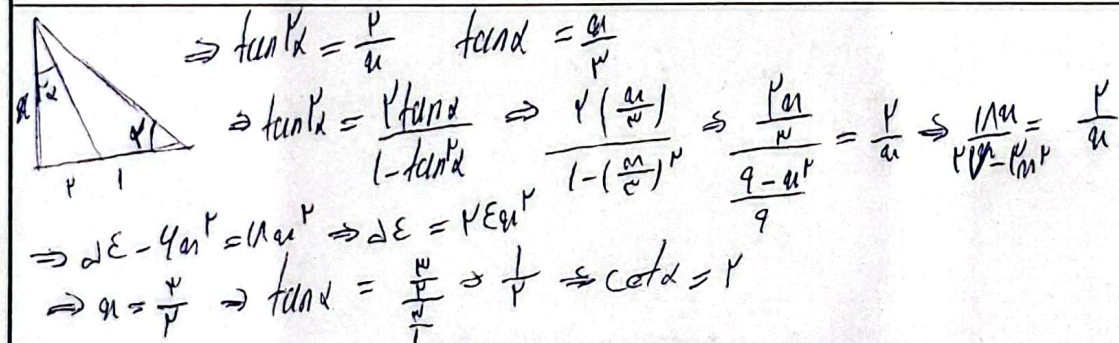 x ۲α α ۲ ۱ ⇒ tan۲α = ۲/x tanα = x/۳
⇒ tan۲α = ۲tanα/(۱-tan²α) ⇒ ۲(x/۳)/(۱-(x/۳)^۲) ⇒ (۲x/۳)/((۹-x^۲)/۹) = ۲/x ⇒ ۱۸x/(۲۷-۳x^۲) = ۲/x
⇒ ۵۴ - ۶x^۲ = ۱۸x^۲ ⇒ ۵۴ = ۲۴x^۲
⇒ x = ۳/۲ ⇒ tanα = (۳/۲)/(۳/۱) ⇒ ۱/۲ ⇒ cotα = ۲